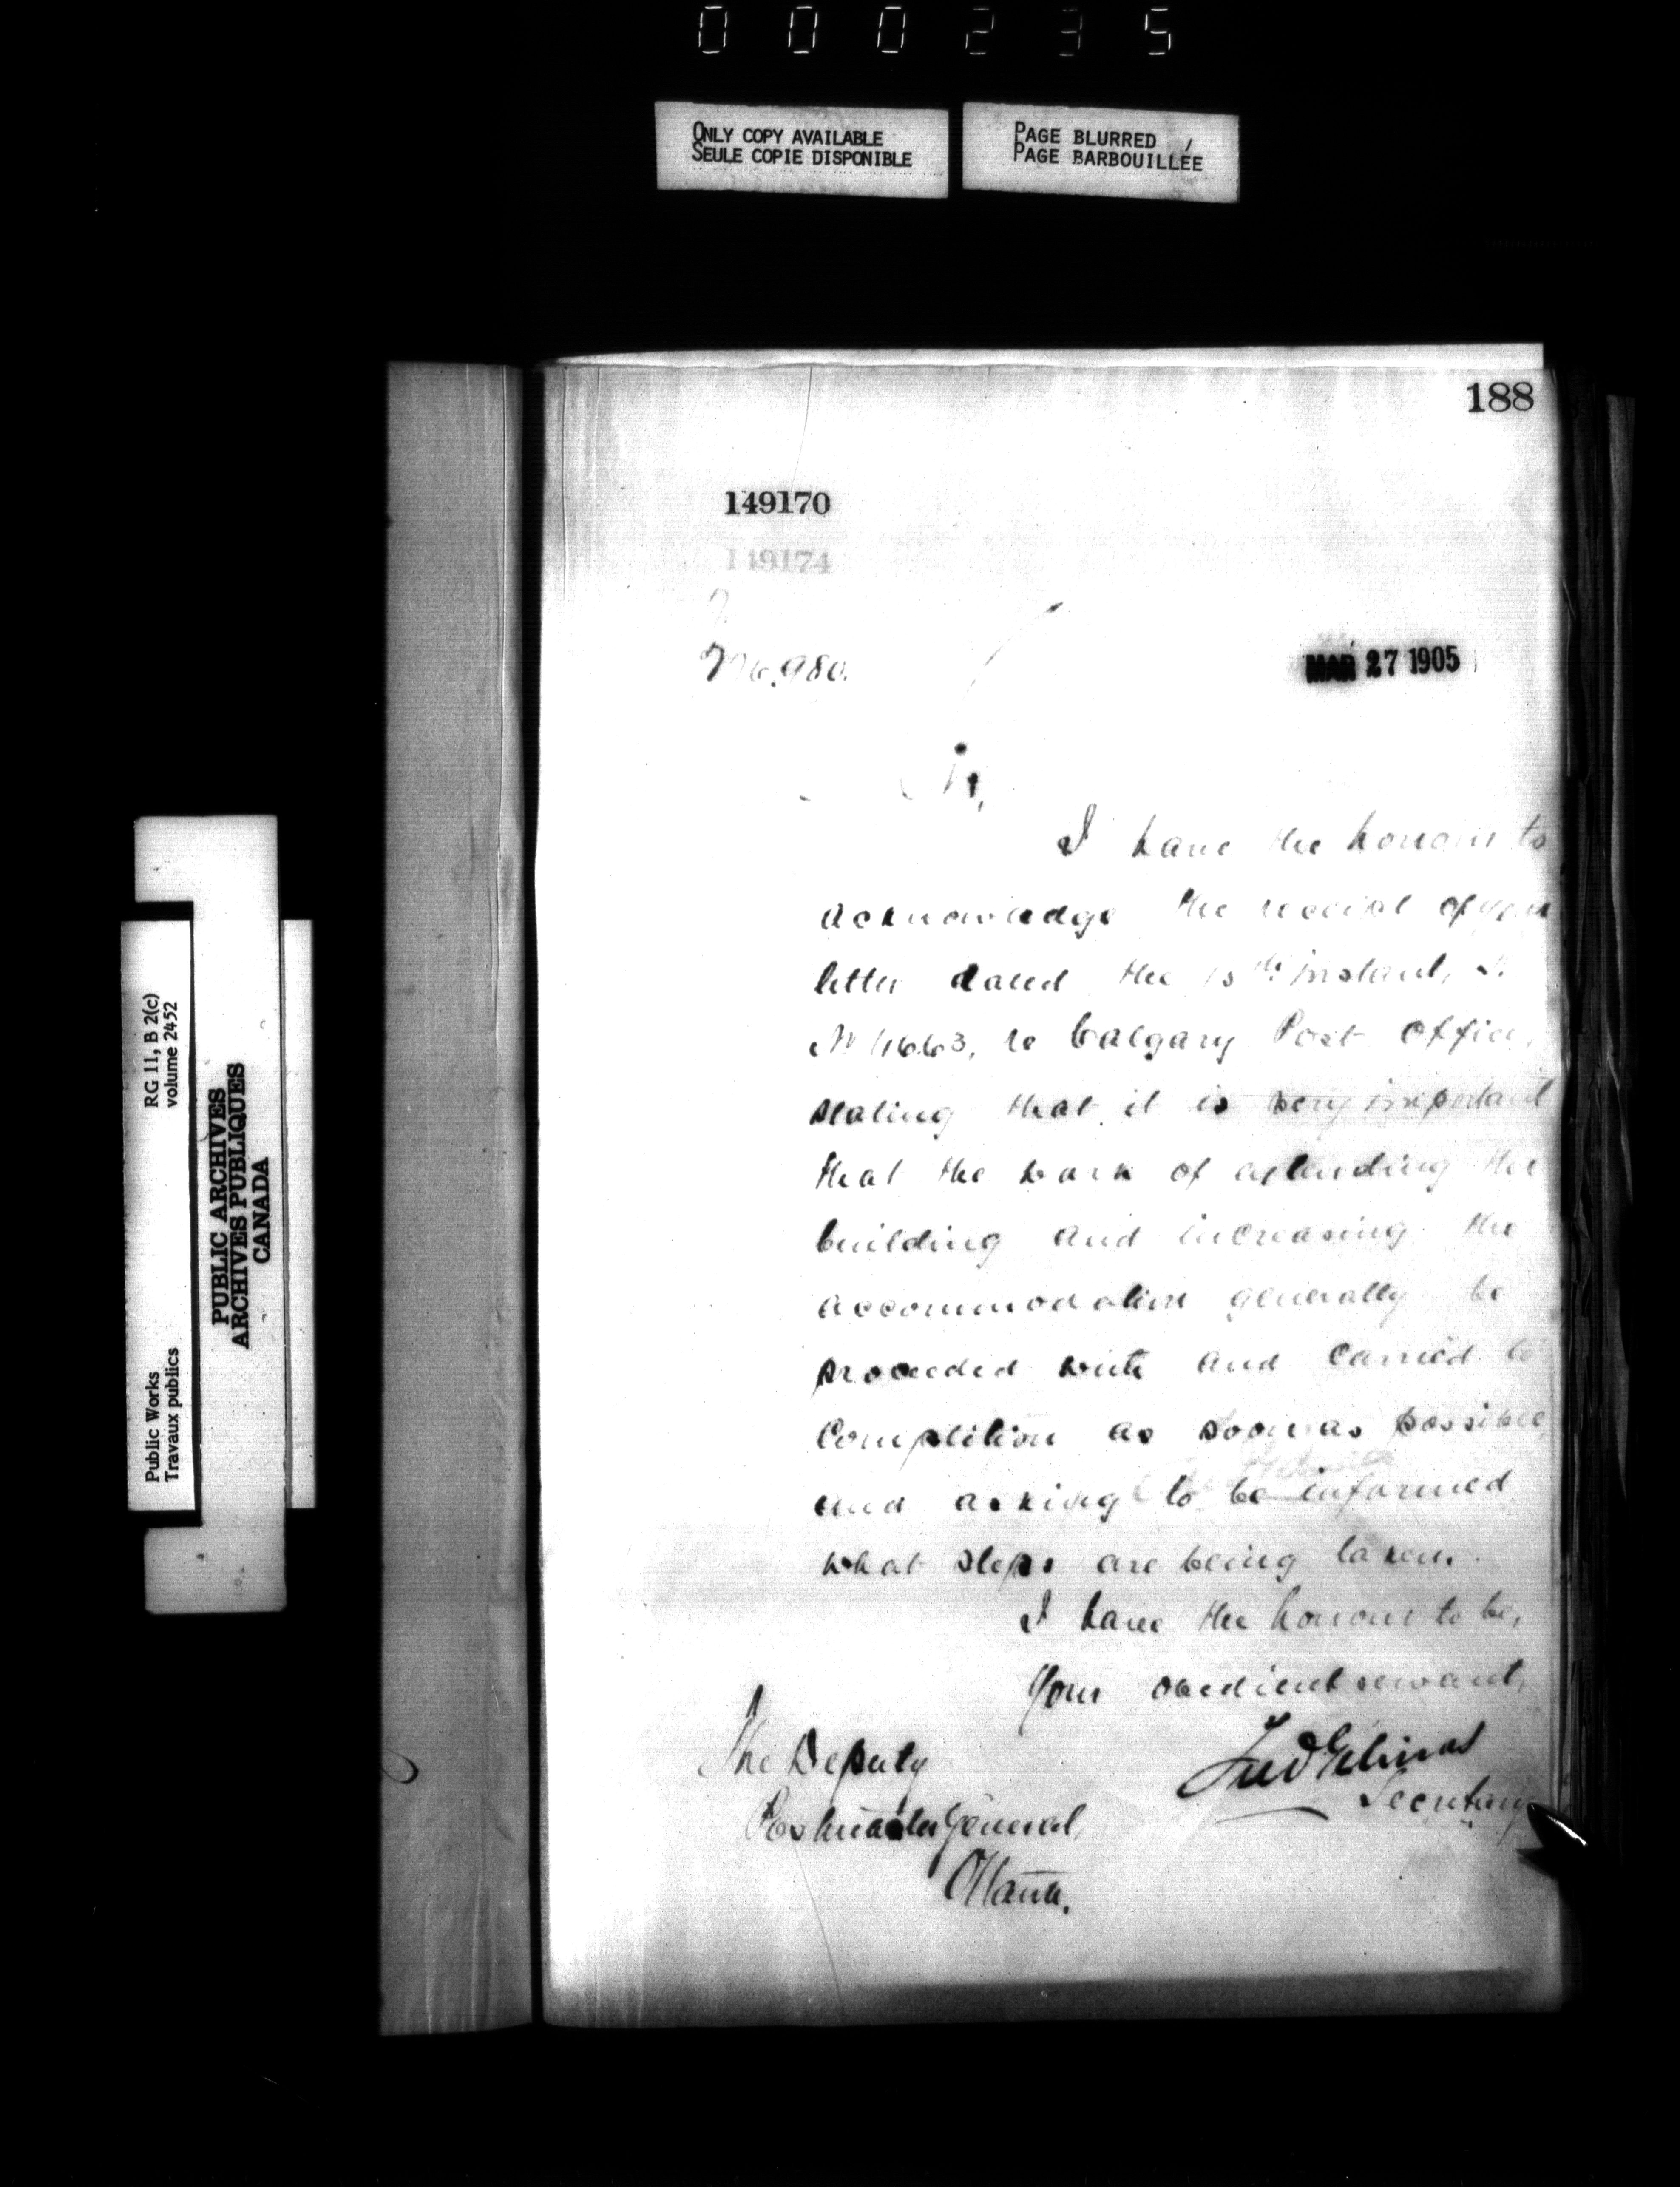 000235
ONLY COPY AVAILABLE
SEULE COPIE DISPONIBLE
PAGE BLURRED
PAGE BARBOUILLÉE
RG 11, B 2(c)
volume 2452
PUBLIC ARCHIVES
ARCHIVES PUBLIQUES
CANADA
Public Works
Travaux publics
188
149170
149174
MAR 27 1905
Sir,
I have the honour to
acknowledge the receipt of your
letter dated the instant,
re Calgary Post Office,
stating that it is very important
that the work of extending the
building and increasing the
accommodation generally be
proceeded with and carried to
completion as soon as possible,
and asking to be informed
what steps are being taken.
I have the honour to be,
Your obedient servant,
Fred Gélinas
Secretary
The Deputy
Postmaster General,
Ottawa.